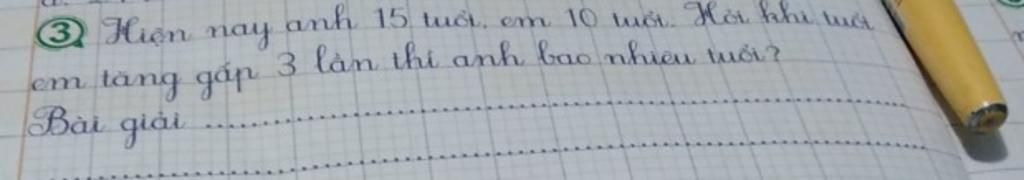 ③ Hiện nay anh 15 tuổi, em 10 tuổi. Hỏi khi tuổi
em tăng gấp 3 lần thì anh bao nhiêu tuổi?
Bài giải